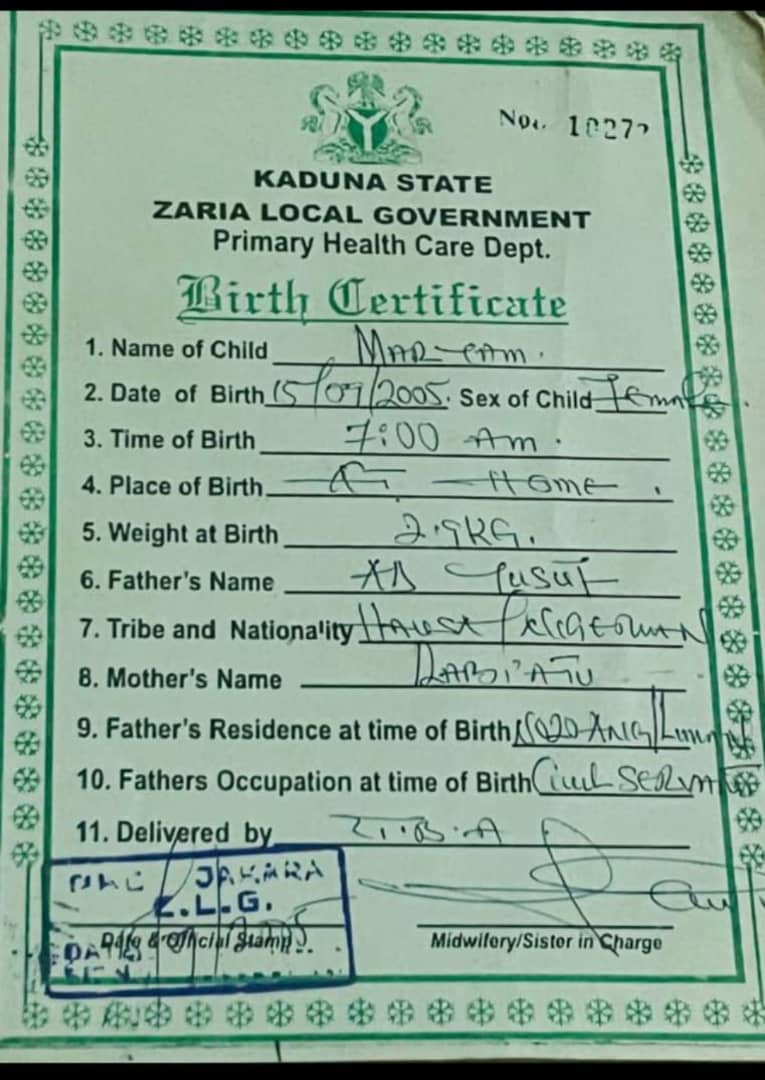 KADUNA STATE
ZARIA LOCAL GOVERNMENT
Primary Health Care Dept.
Birth Certificate
1. Name of Child
2. Date of Birth 15/09/2005. Sex of Child Female.
3. Time of Birth 7:00 Am.
4. Place of Birth AT Home.
5. Weight at Birth 2.9KG.
6. Father's Name Yusuf
7. Tribe and Nationality Hausa /
8. Mother's Name RABI'ATU
9. Father's Residence at time of Birth
10. Fathers Occupation at time of Birth Civil SERVANT
11. Delivered by
JAKARA
Z.L.G.
Date & Official Stamp
Midwifery/Sister in Charge